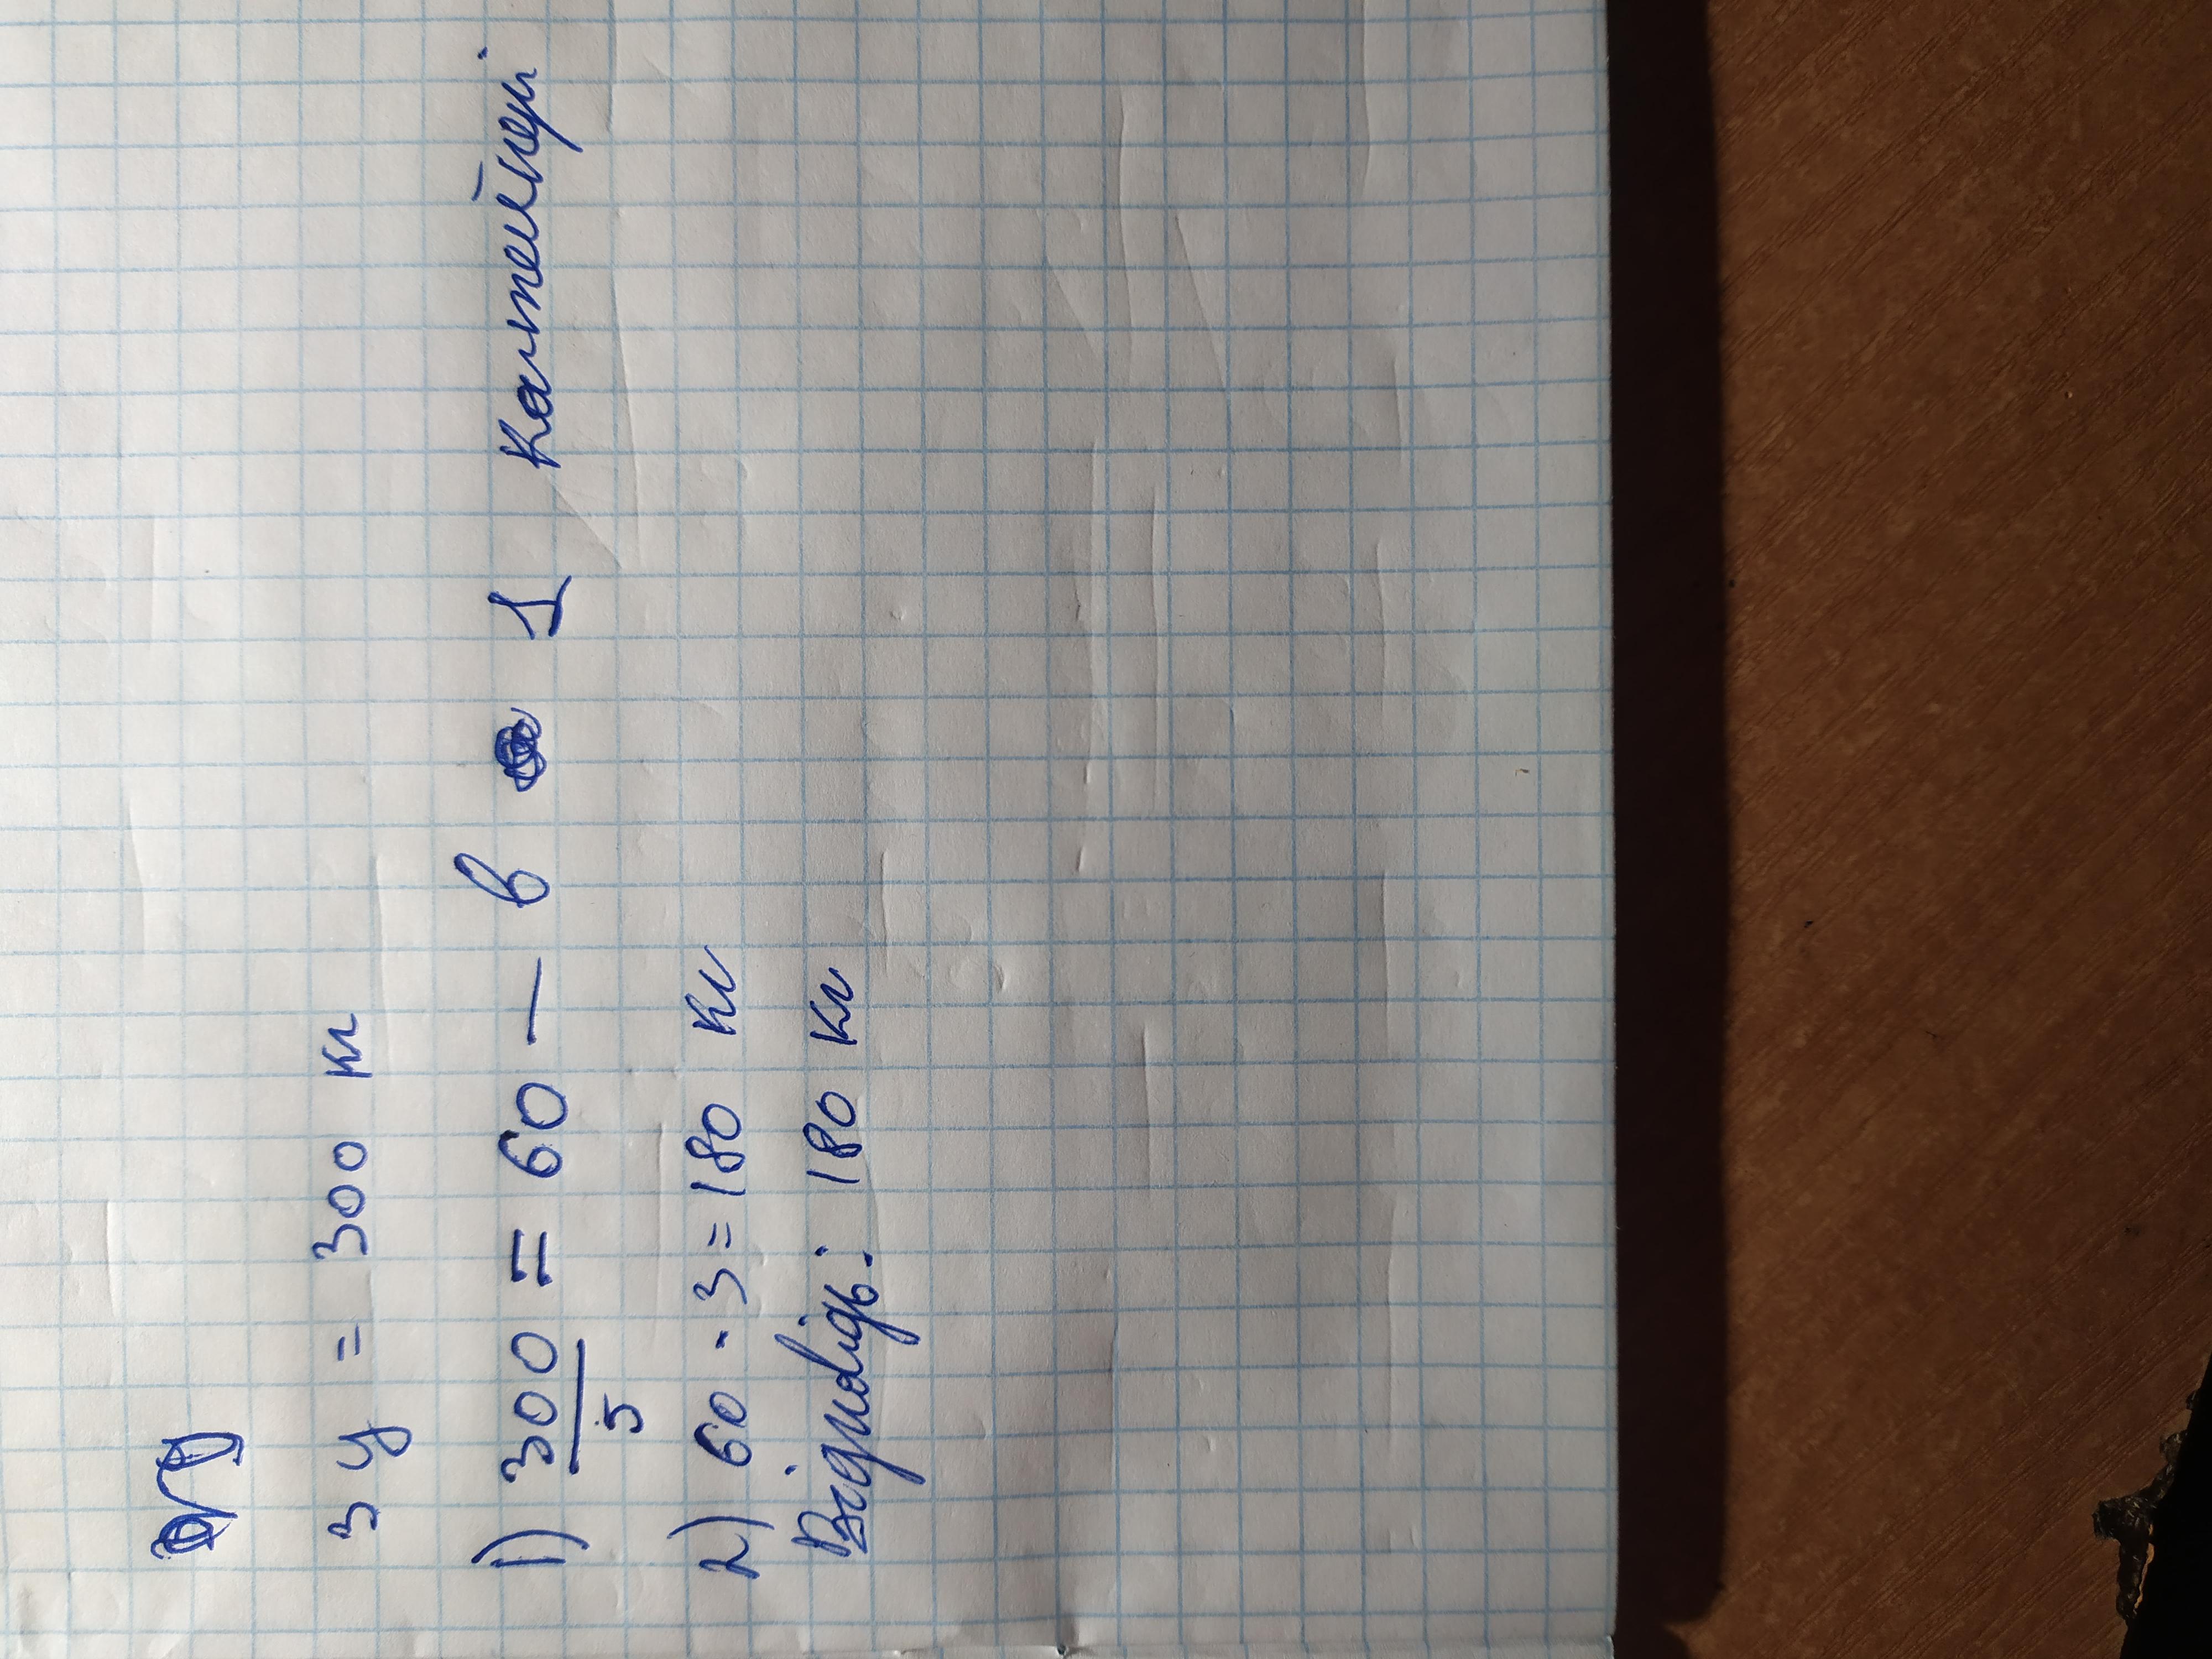 3 ц = 300 кг
1) 300/5 = 60 — в 1 контейнері
2) 60 · 3 = 180 кг
Відповідь: 180 кг